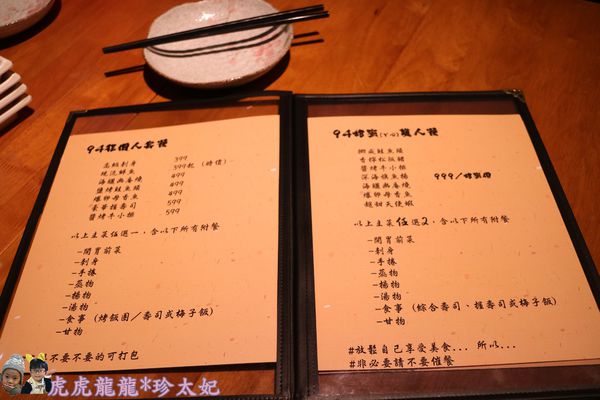 94狂個人套餐
高級刺身 399
現流鮮魚 399起 (時價)
海鱺幽庵燒 499
鹽烤鮭魚頭 499
爆卵母香魚 499
豪華握壽司 599
醬烤牛小排 599
以上主菜伍選一，含以下所有附餐
-開胃前菜
-刺身
-手捲
-蒸物
-揚物
-湯物
-食事 (烤飯團/壽司或梅子飯)
-甘物
不要不要的可打包
虎虎龍龍*珍太妃
94雙人餐
鮭魚頭
香檸松阪豬
醬烤牛小排
深海旗魚腸
海鱺幽庵燒
爆卵母香魚
越甜天使蝦
999/
以上主菜伍選2，含以下所有附餐
-開胃前菜
-刺身
-手捲
-蒸物
-揚物
-湯物
-食事 (綜合壽司、握壽司或梅子飯)
-甘物
#放鬆自己享受美食... 所以...
#非必要請不要催餐